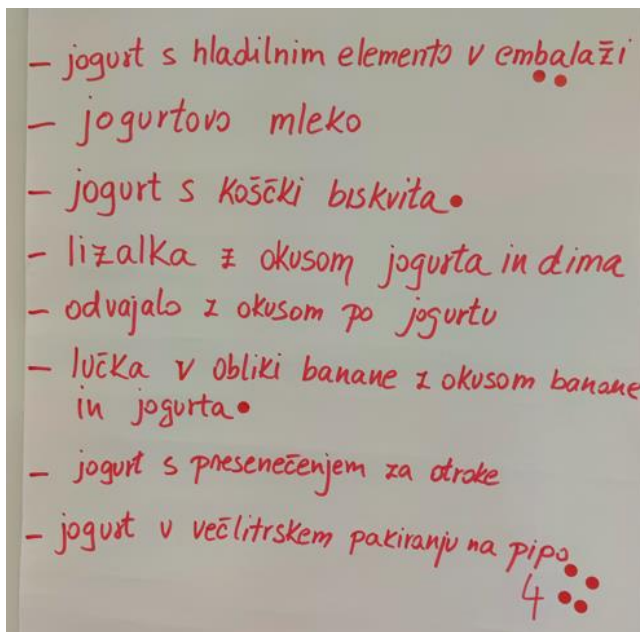 - jogurt s hladilnim elemento v embalaži
- jogurtovo mleko
- jogurt s koščki biskvita
- lizalka z okusom jogurta in dima
- odvajalo z okusom po jogurtu
- lučka v obliki banane z okusom banane
in jogurta
- jogurt s presenečenjem za otroke
- jogurt v večlitrskem pakiranju na pipo
4